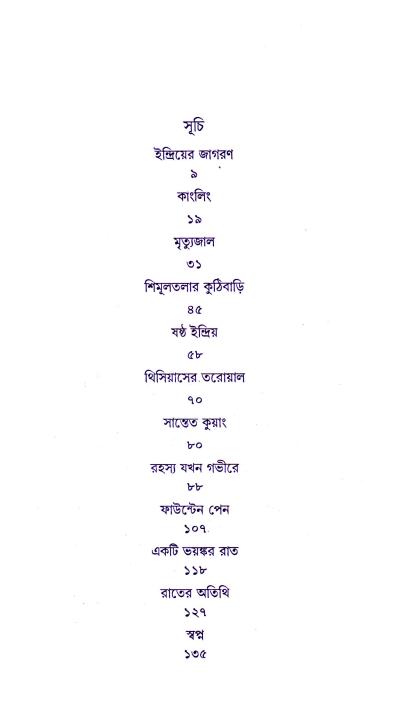 সূচি
ইন্দ্রিয়ের জাগরণ
৯
কাংলিং
১৯
মৃত্যুজাল
৩১
শিমূলতলার কুঠিবাড়ি
৪৫
ষষ্ঠ ইন্দ্রিয়
৫৮
থিসিয়াসের তরোয়াল
৭০
সান্তেত কুয়াং
৮০
রহস্য যখন গভীরে
৮৮
ফাউন্টেন পেন
১০৭
একটি ভয়ঙ্কর রাত
১১৮
রাতের অতিথি
১২৭
স্বপ্ন
১৩৫